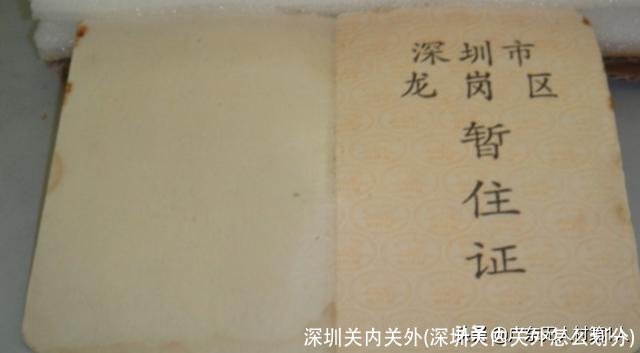 深圳市
龙岗区
暂
住
证
深圳关内关外(深圳关内关外怎么划分)